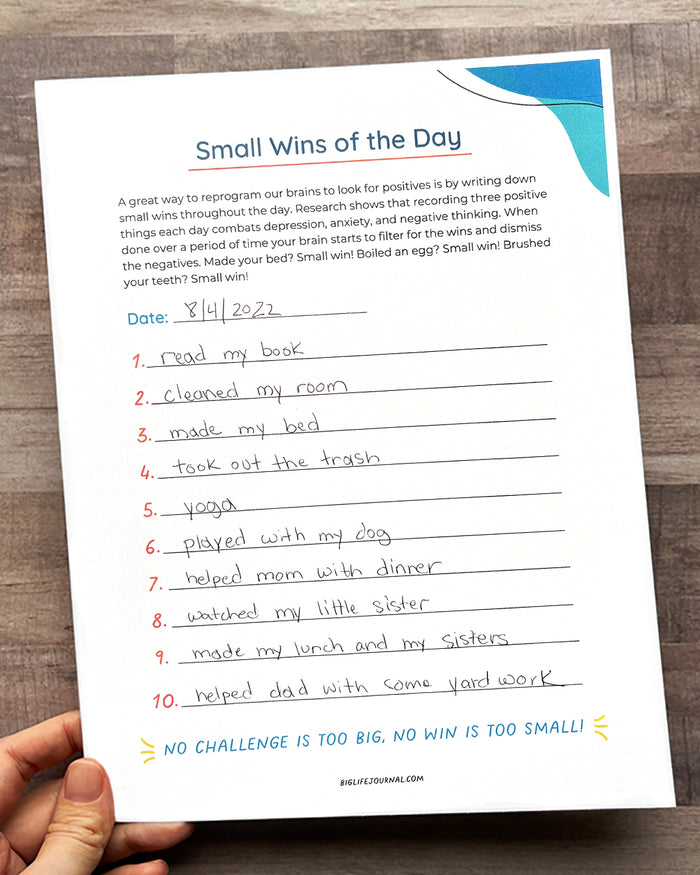 Small Wins of the Day
A great way to reprogram our brains to look for positives is by writing down
small wins throughout the day. Research shows that recording three positive
things each day combats depression, anxiety, and negative thinking. When
done over a period of time your brain starts to filter for the wins and dismiss
the negatives. Made your bed? Small win! Boiled an egg? Small win! Brushed
your teeth? Small win!
Date: 8/4/2022
1. read my book
2. cleaned my room
3. made my bed
4. took out the trash
5. yoga
6. played with my dog
7. helped mom with dinner
8. watched my little sister
9. made my lunch and my sisters
10. helped dad with some yard work
NO CHALLENGE IS TOO BIG, NO WIN IS TOO SMALL!
BIGLIFEJOURNAL.COM